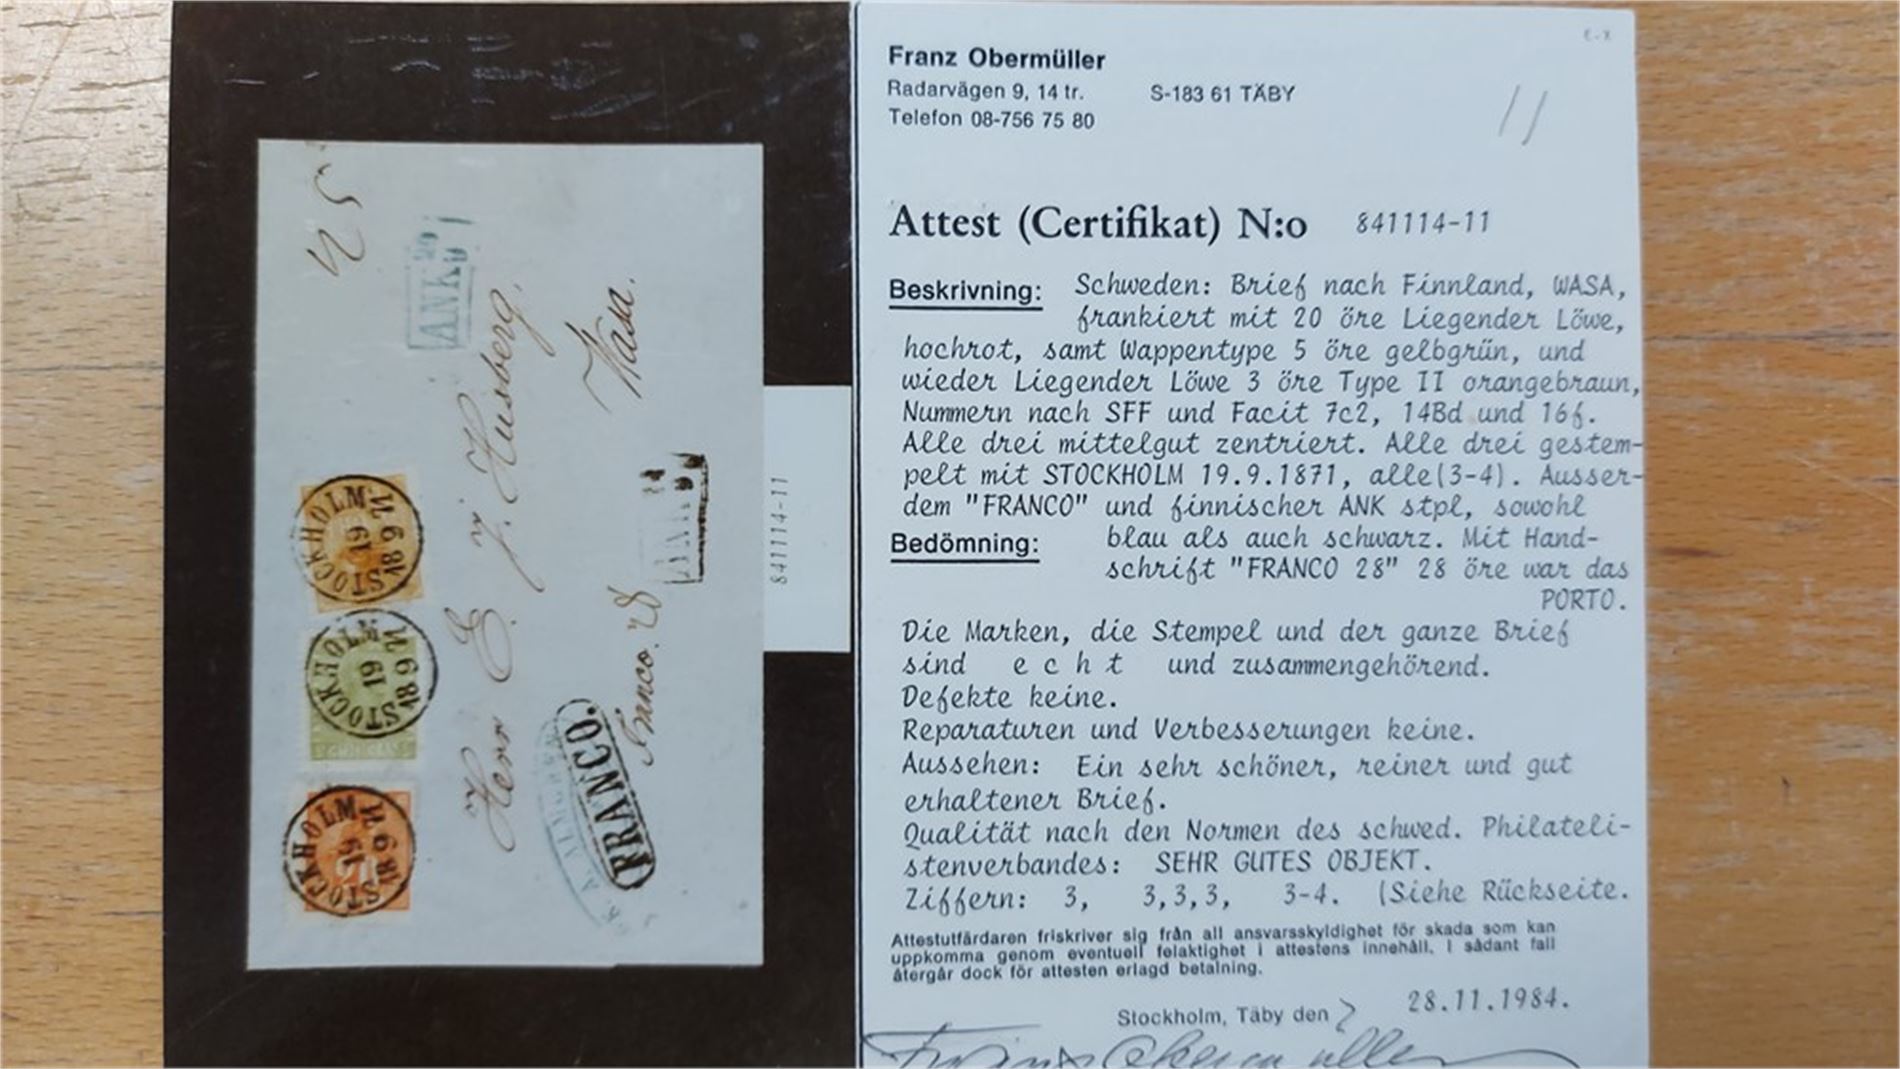 25
ANK
Herr E. J. Husberg.
Wasa.
ANK
Franco. 28
FRANCO.
STOCKHOLM
19
9
1871
STOCKHOLM
19
9
1871
STOCKHOLM
19
9
1871
841114-11
Franz Obermüller
Radarvägen 9, 14 tr. S-183 61 TÄBY
Telefon 08-756 75 80
11
Attest (Certifikat) N:o 841114-11
Beskrivning: Schweden: Brief nach Finnland, WASA,
frankiert mit 20 öre Liegender Löwe,
hochrot, samt Wappentype 5 öre gelbgrün, und
wieder Liegender Löwe 3 öre Type II orangebraun,
Nummern nach SFF und Facit 7c2, 14Bd und 16f.
Alle drei mittelgut zentriert. Alle drei gestem-
pelt mit STOCKHOLM 19.9.1871, alle(3-4). Ausser-
dem "FRANCO" und finnischer ANK stpl, sowohl
Bedömning: blau als auch schwarz. Mit Hand-
schrift "FRANCO 28" 28 öre war das
PORTO.
Die Marken, die Stempel und der ganze Brief
sind e c h t und zusammengehörend.
Defekte keine.
Reparaturen und Verbesserungen keine.
Aussehen: Ein sehr schöner, reiner und gut
erhaltener Brief.
Qualität nach den Normen des schwed. Philateli-
stenverbandes: SEHR GUTES OBJEKT.
Ziffern: 3, 3,3,3, 3-4. (Siehe Rückseite.
Attestutfärdaren friskriver sig från all ansvarsskyldighet för skada som kan
uppkomma genom eventuell felaktighet i attestens innehåll. I sådant fall
återgår dock för attesten erlagd betalning.
Stockholm, Täby den 28.11.1984.
Franz Obermüller